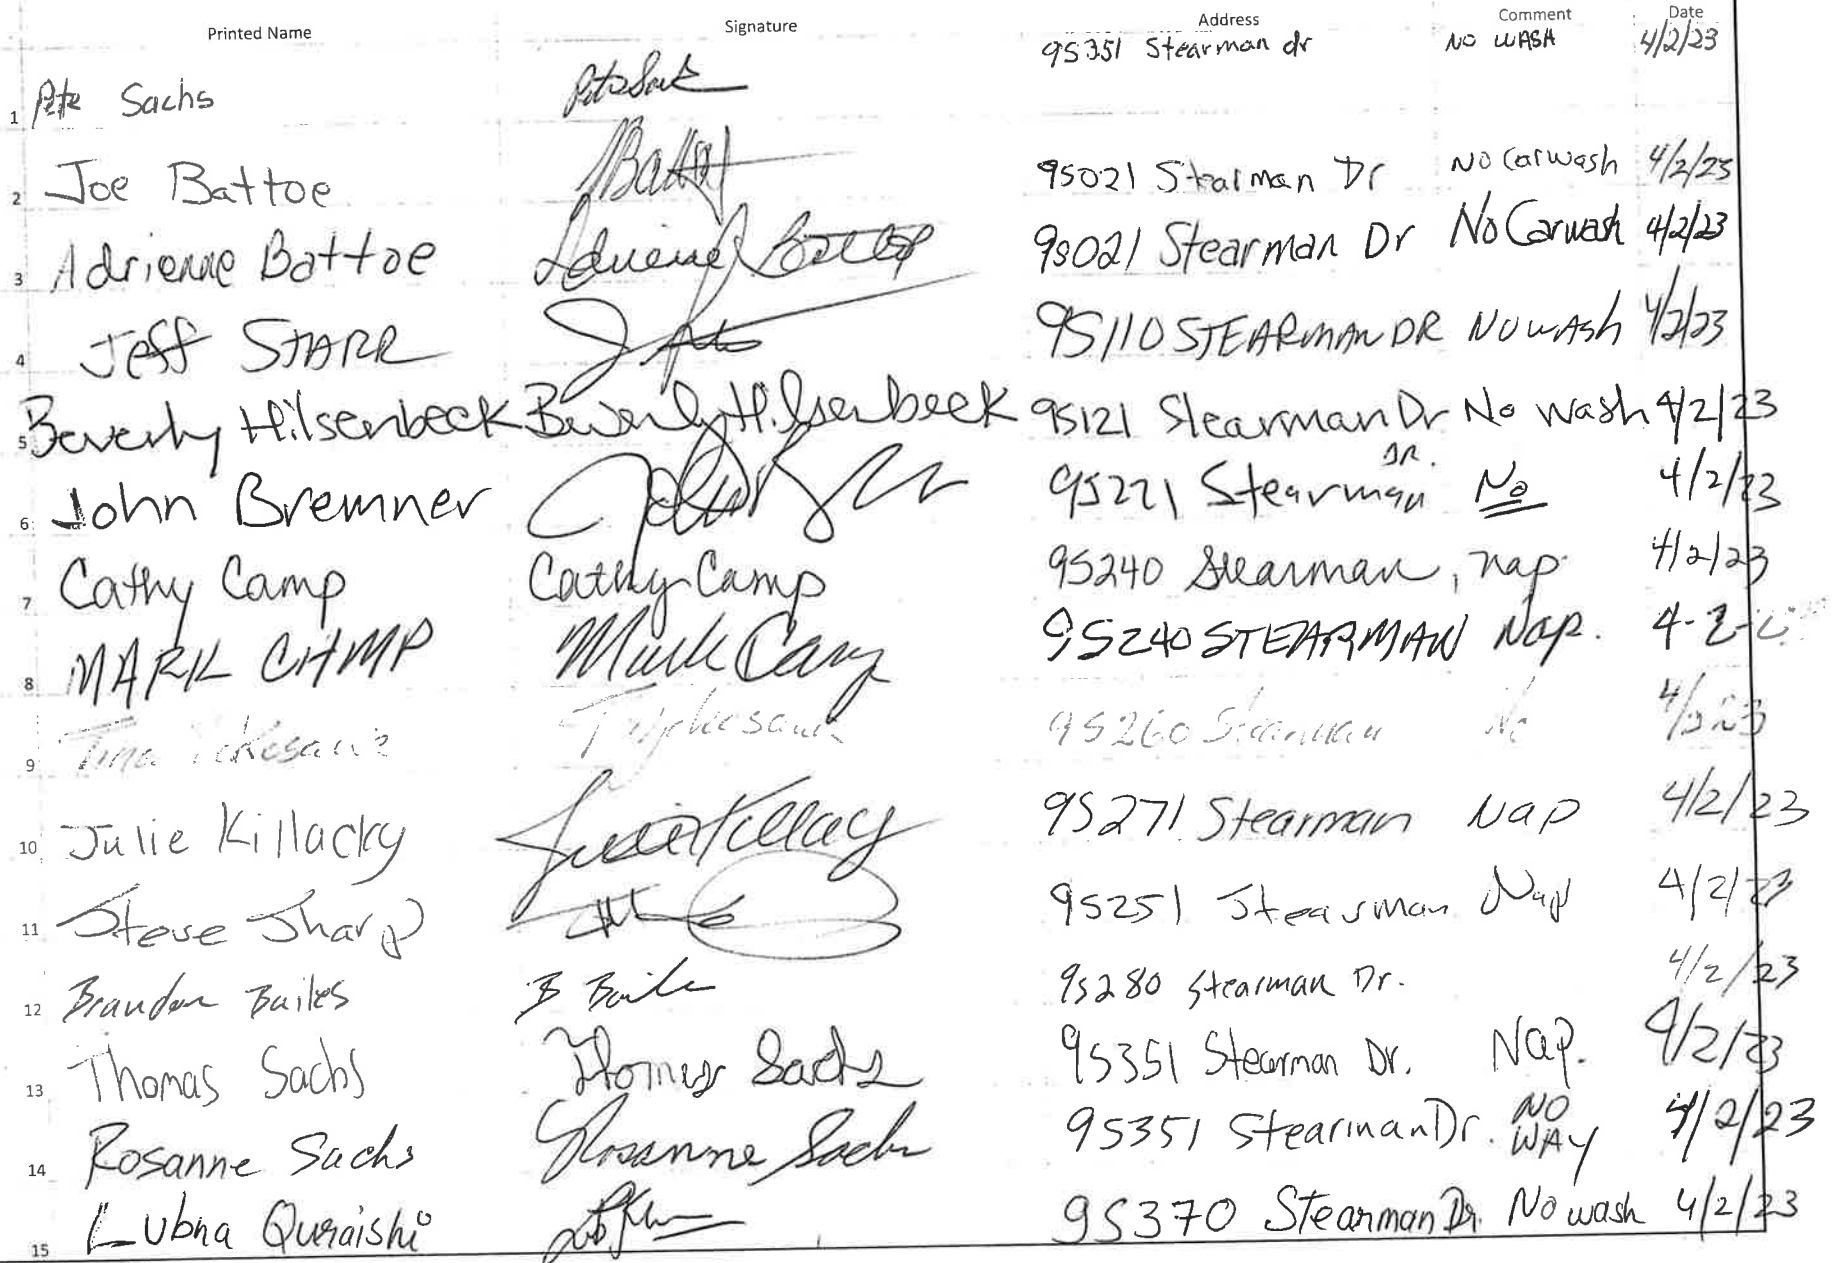 Printed Name Signature Address Comment Date
95351 Stearman dr NO WASH 4/2/23
1 Pete Sachs
2 Joe Battoe 95021 Stearman Dr No Carwash 4/2/23
3 Adrienne Battoe Adrienne Battoe 95021 Stearman Dr No Carwash 4/2/23
4 Jeff STARR 95110 STEARMAN DR NO WASH 4/2/23
5 Beverly Hilsenbeck Beverly Hilsenbeck 95121 Stearman Dr No wash 4/2/23
6 John Bremner 95221 Stearman DR. No 4/2/23
7 Cathy Camp Cathy Camp 95240 Stearman, nap. 4/2/23
8 MARK CAMP Mark Camp 95240 STEARMAN Nap. 4-2-
9 Tina 95260 Stearman No 4/2/23
10 Julie Killacky Julie Killacky 95271 Stearman Nap 4/2/23
11 Steve Sharp 95251 Stearman Nap 4/2/23
12 Brandon Bailes B Baile 95280 Stearman Dr. 4/2/23
13 Thomas Sachs Thomas Sachs 95351 Stearman Dr. Nap. 4/2/23
14 Rosanne Sachs Rosanne Sachs 95351 Stearman Dr. NO WAY 4/2/23
15 Lubna Quraishi 95370 Stearman Dr. No wash 4/2/23